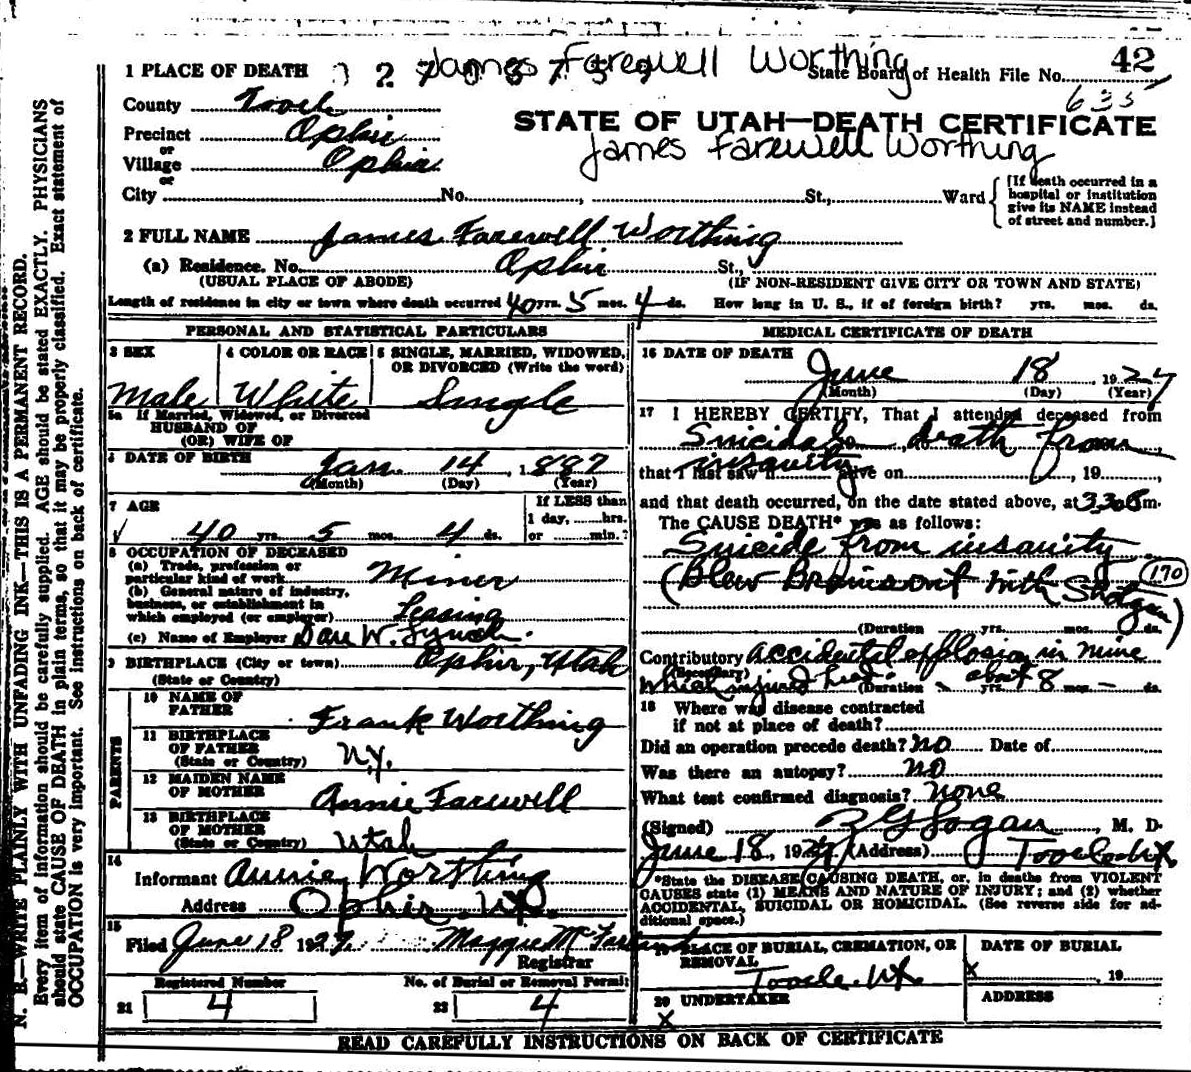 James Farewell Worthing
42
1 PLACE OF DEATH
State Board of Health File No.
635
County Tooel
STATE OF UTAH—DEATH CERTIFICATE
Precinct Ophir
James Farewell Worthing
or
Village Ophir
or
City No. , St., Ward
[If death occurred in a hospital or institution give its NAME instead of street and number.]
2 FULL NAME James Farewell Worthing
(a) Residence. No. Ophir St.,
(USUAL PLACE OF ABODE) (IF NON-RESIDENT GIVE CITY OR TOWN AND STATE)
Length of residence in city or town where death occurred 40 yrs. 5 mos. 4 ds. How long in U. S., if of foreign birth? yrs. mos. ds.
PERSONAL AND STATISTICAL PARTICULARS
3 SEX
Male
4 COLOR OR RACE
White
5 SINGLE, MARRIED, WIDOWED,
OR DIVORCED (Write the word)
Single
5a If Married, Widowed, or Divorced
HUSBAND OF
(OR) WIFE OF
6 DATE OF BIRTH Jan. 14, 1887
(Month) (Day) (Year)
7 AGE
40 yrs. 5 mos. 4 ds.
If LESS than
1 day, hrs.
or min.?
8 OCCUPATION OF DECEASED
(a) Trade, profession or
particular kind of work Miner
(b) General nature of industry,
business, or establishment in
which employed (or employer) Leasing
(c) Name of Employer Dave W. Lynch.
9 BIRTHPLACE (City or town) Ophir, Utah
(State or Country)
PARENTS
10 NAME OF
FATHER Frank Worthing
11 BIRTHPLACE
OF FATHER
(State or Country) N.Y.
12 MAIDEN NAME
OF MOTHER Annie Farewell
13 BIRTHPLACE
OF MOTHER
(State or Country) Utah
14
Informant Annie Worthing
Address Ophir. Ut.
15
Filed June 18 1927 Maggie McFarland
Registrar
Registered Number
21 4
No. of Burial or Removal Permit
22 4
MEDICAL CERTIFICATE OF DEATH
16 DATE OF DEATH
June 18, 1927
(Month) (Day) (Year)
17 I HEREBY CERTIFY, That I attended deceased from
Suicidal death from
that I last saw h alive on , 19
insanity
and that death occurred, on the date stated above, at 3.30 m.
The CAUSE DEATH* was as follows:
Suicide from insanity
(Blew Brains out with Shotgun)
170
(Duration yrs. mos. ds.
Contributory accidental explosion in mine
(Secondary)
which injured head. (Duration yrs. about 8 mos. – ds.
18 Where was disease contracted
if not at place of death?
Did an operation precede death? No Date of
Was there an autopsy? No
What test confirmed diagnosis? none
(Signed) Logan, M. D.
June 18, 1927 (Address) Tooele Ut
*State the DISEASE CAUSING DEATH, or, in deaths from VIOLENT
CAUSES state (1) MEANS AND NATURE OF INJURY; and (2) whether
ACCIDENTAL, SUICIDAL OR HOMICIDAL. (See reverse side for ad-
ditional space.)
19 PLACE OF BURIAL, CREMATION, OR
REMOVAL
Tooele. Ut.
DATE OF BURIAL
x , 19
20 UNDERTAKER
x
ADDRESS
READ CAREFULLY INSTRUCTIONS ON BACK OF CERTIFICATE
N. B.—WRITE PLAINLY WITH UNFADING INK—THIS IS A PERMANENT RECORD.
Every item of information should be carefully supplied. AGE should be stated EXACTLY. PHYSICIANS
should state CAUSE OF DEATH in plain terms, so that it may be properly classified. Exact statement of
OCCUPATION is very important. See instructions on back of certificate.